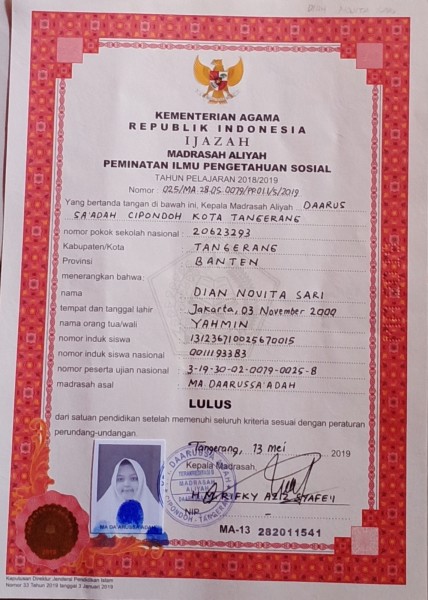 DIAN NOVITA SARI
KEMENTERIAN AGAMA
REPUBLIK INDONESIA
IJAZAH
MADRASAH ALIYAH
PEMINATAN ILMU PENGETAHUAN SOSIAL
TAHUN PELAJARAN 2018/2019
Nomor : 025/MA.28.05.0079/PP.01.1/5/2019
Yang bertanda tangan di bawah ini, Kepala Madrasah Aliyah DAARUS
SA'ADAH CIPONDOH KOTA TANGERANG
nomor pokok sekolah nasional : 20623293
Kabupaten/Kota : TANGERANG
Provinsi : BANTEN
menerangkan bahwa:
nama : DIAN NOVITA SARI
tempat dan tanggal lahir : Jakarta, 03 November 2000
nama orang tua/wali : YAHMIN
nomor induk siswa : 131236710025670015
nomor induk siswa nasional : 0011193383
nomor peserta ujian nasional : 3-19-30-02-0079-0025-8
madrasah asal : MA. DAARUSSA'ADAH
LULUS
dari satuan pendidikan setelah memenuhi seluruh kriteria sesuai dengan peraturan
perundang-undangan.
Tangerang, 13 Mei 2019
Kepala Madrasah,
MADRASAH
ALIYAH
H.M. RIFKY AZIZ SYAFE'I
NIP. -
MA DAARUSSA'ADAH
MA-13 282011541
Keputusan Direktur Jenderal Pendidikan Islam
Nomor 33 Tahun 2019 tanggal 3 Januari 2019